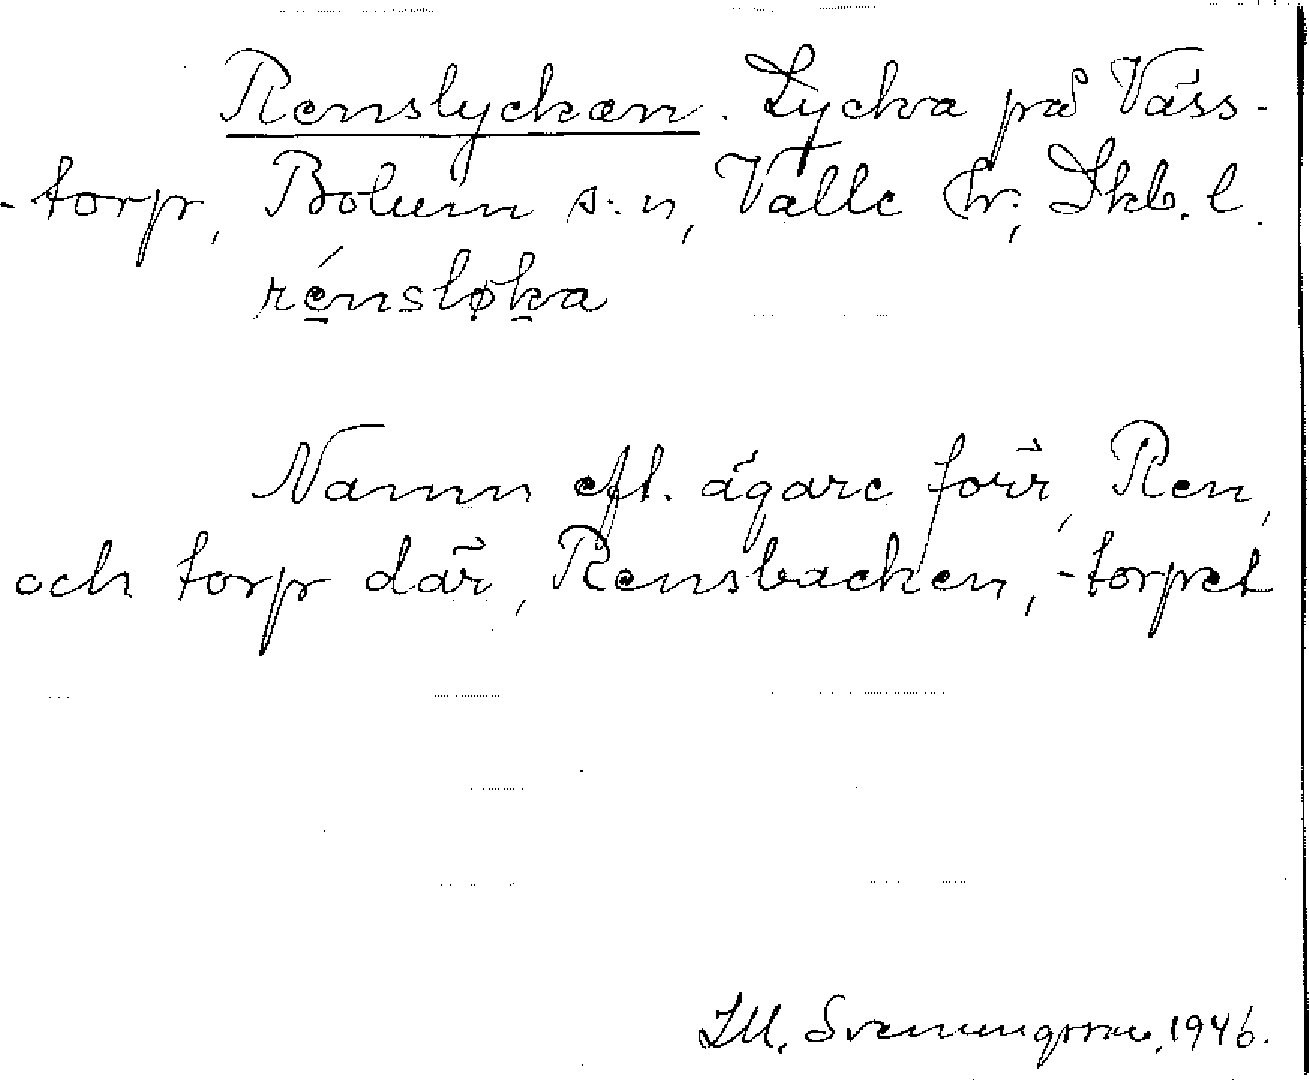 Renslyckan. Lycka på Väss-
-torp, Bolum s:n, Valle hr; Skb. l.
rénsløka
Namn eft. ägare förr, Ren,
och torp där, Rensbacken, -torpet
Svenungsson, 1946.